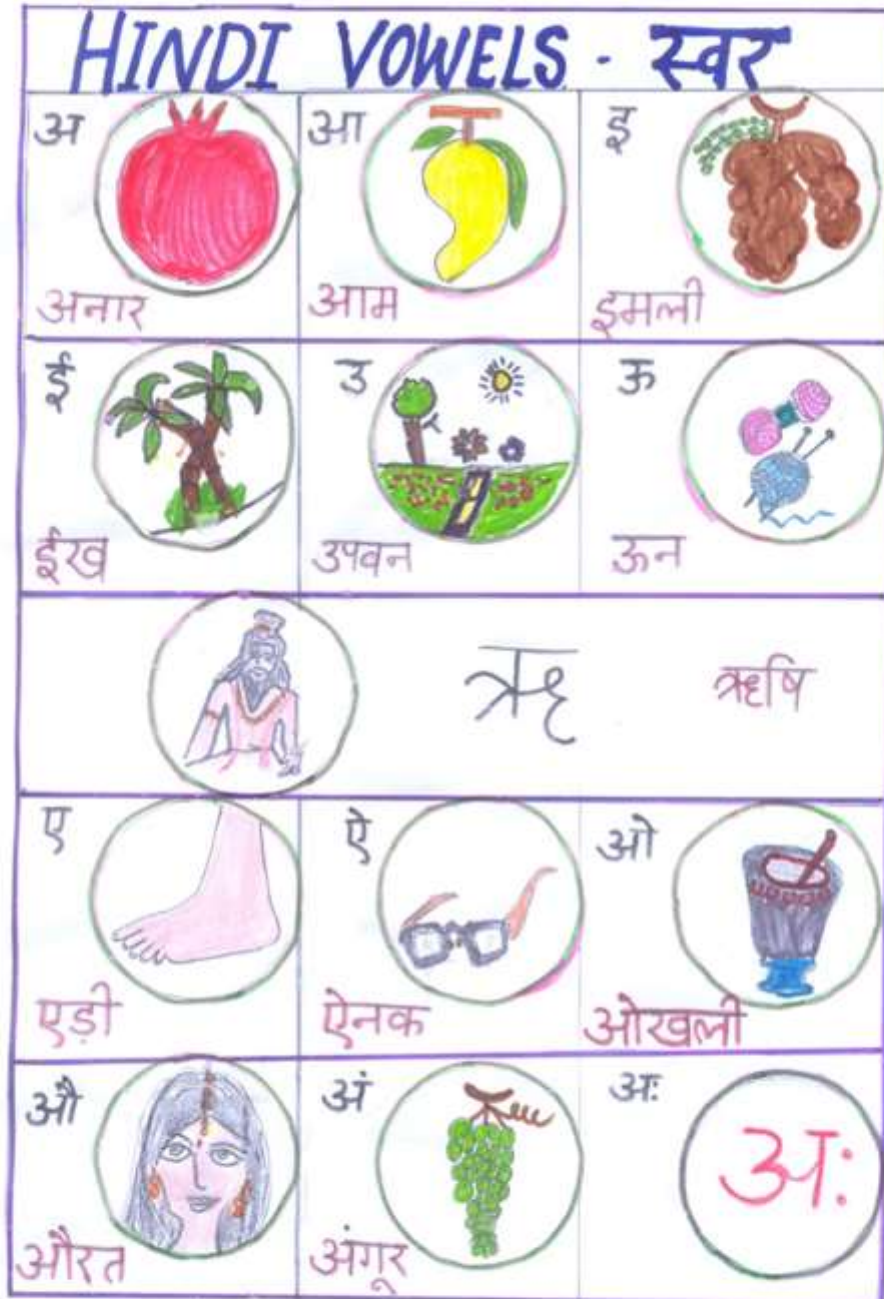 HINDI VOWELS - स्वर
अ
अनार
आ
आम
इ
इमली
ई
ईख
उ
उपवन
ऊ
ऊन
ऋ
ऋषि
ए
एड़ी
ऐ
ऐनक
ओ
ओखली
औ
औरत
अं
अंगूर
अः
अः